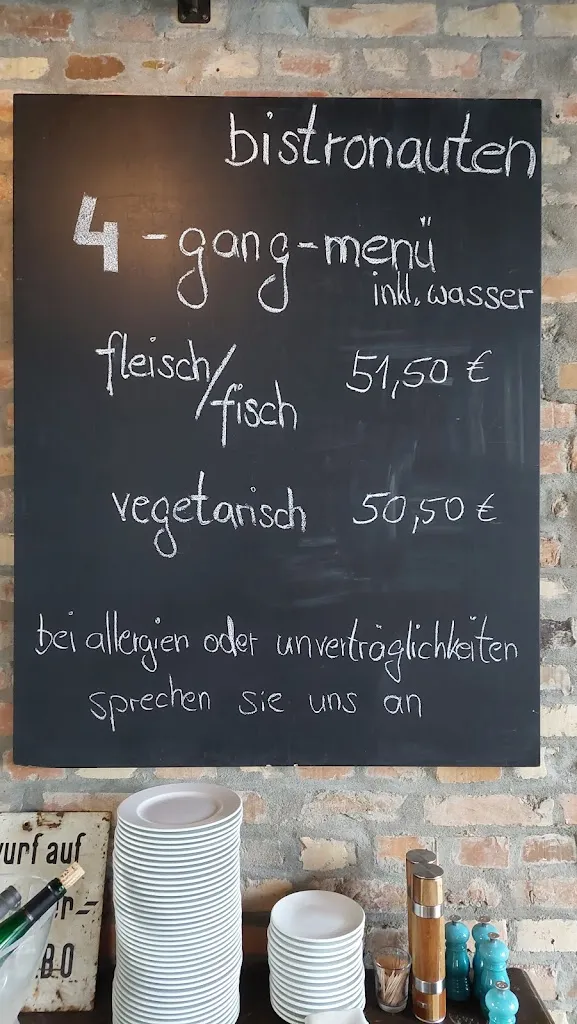 bistronauten
4-gang-menü
inkl. wasser
fleisch/ 51,50 €
fisch
vegetarisch 50,50 €
bei allergien oder unverträglichkeiten
sprechen sie uns an
wurf auf